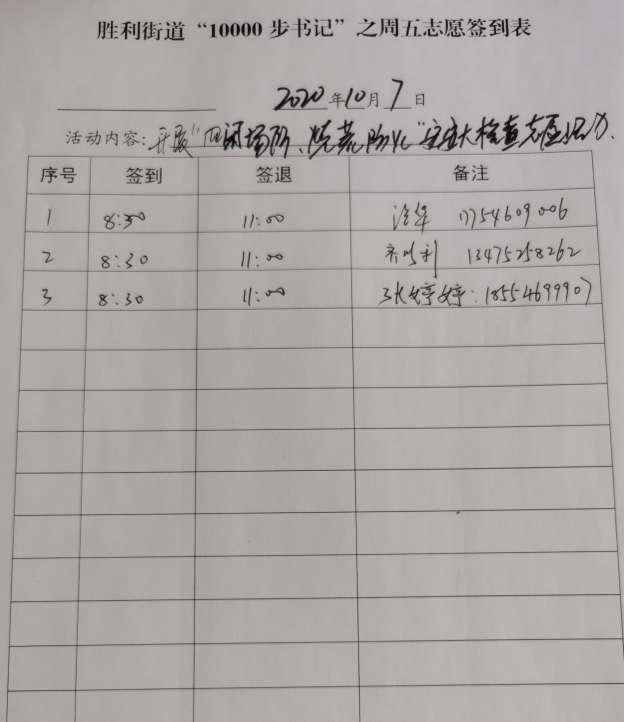 胜利街道“10000步书记”之周五志愿签到表
2020年10月7日
活动内容：开展“四闲场所、烧荒防火”安全大检查志愿活动.
序号 签到 签退 备注
1 8:30 11:00 17754609006
2 8:30 11:00 13475258262
3 8:30 11:00 张婷婷：18554699907